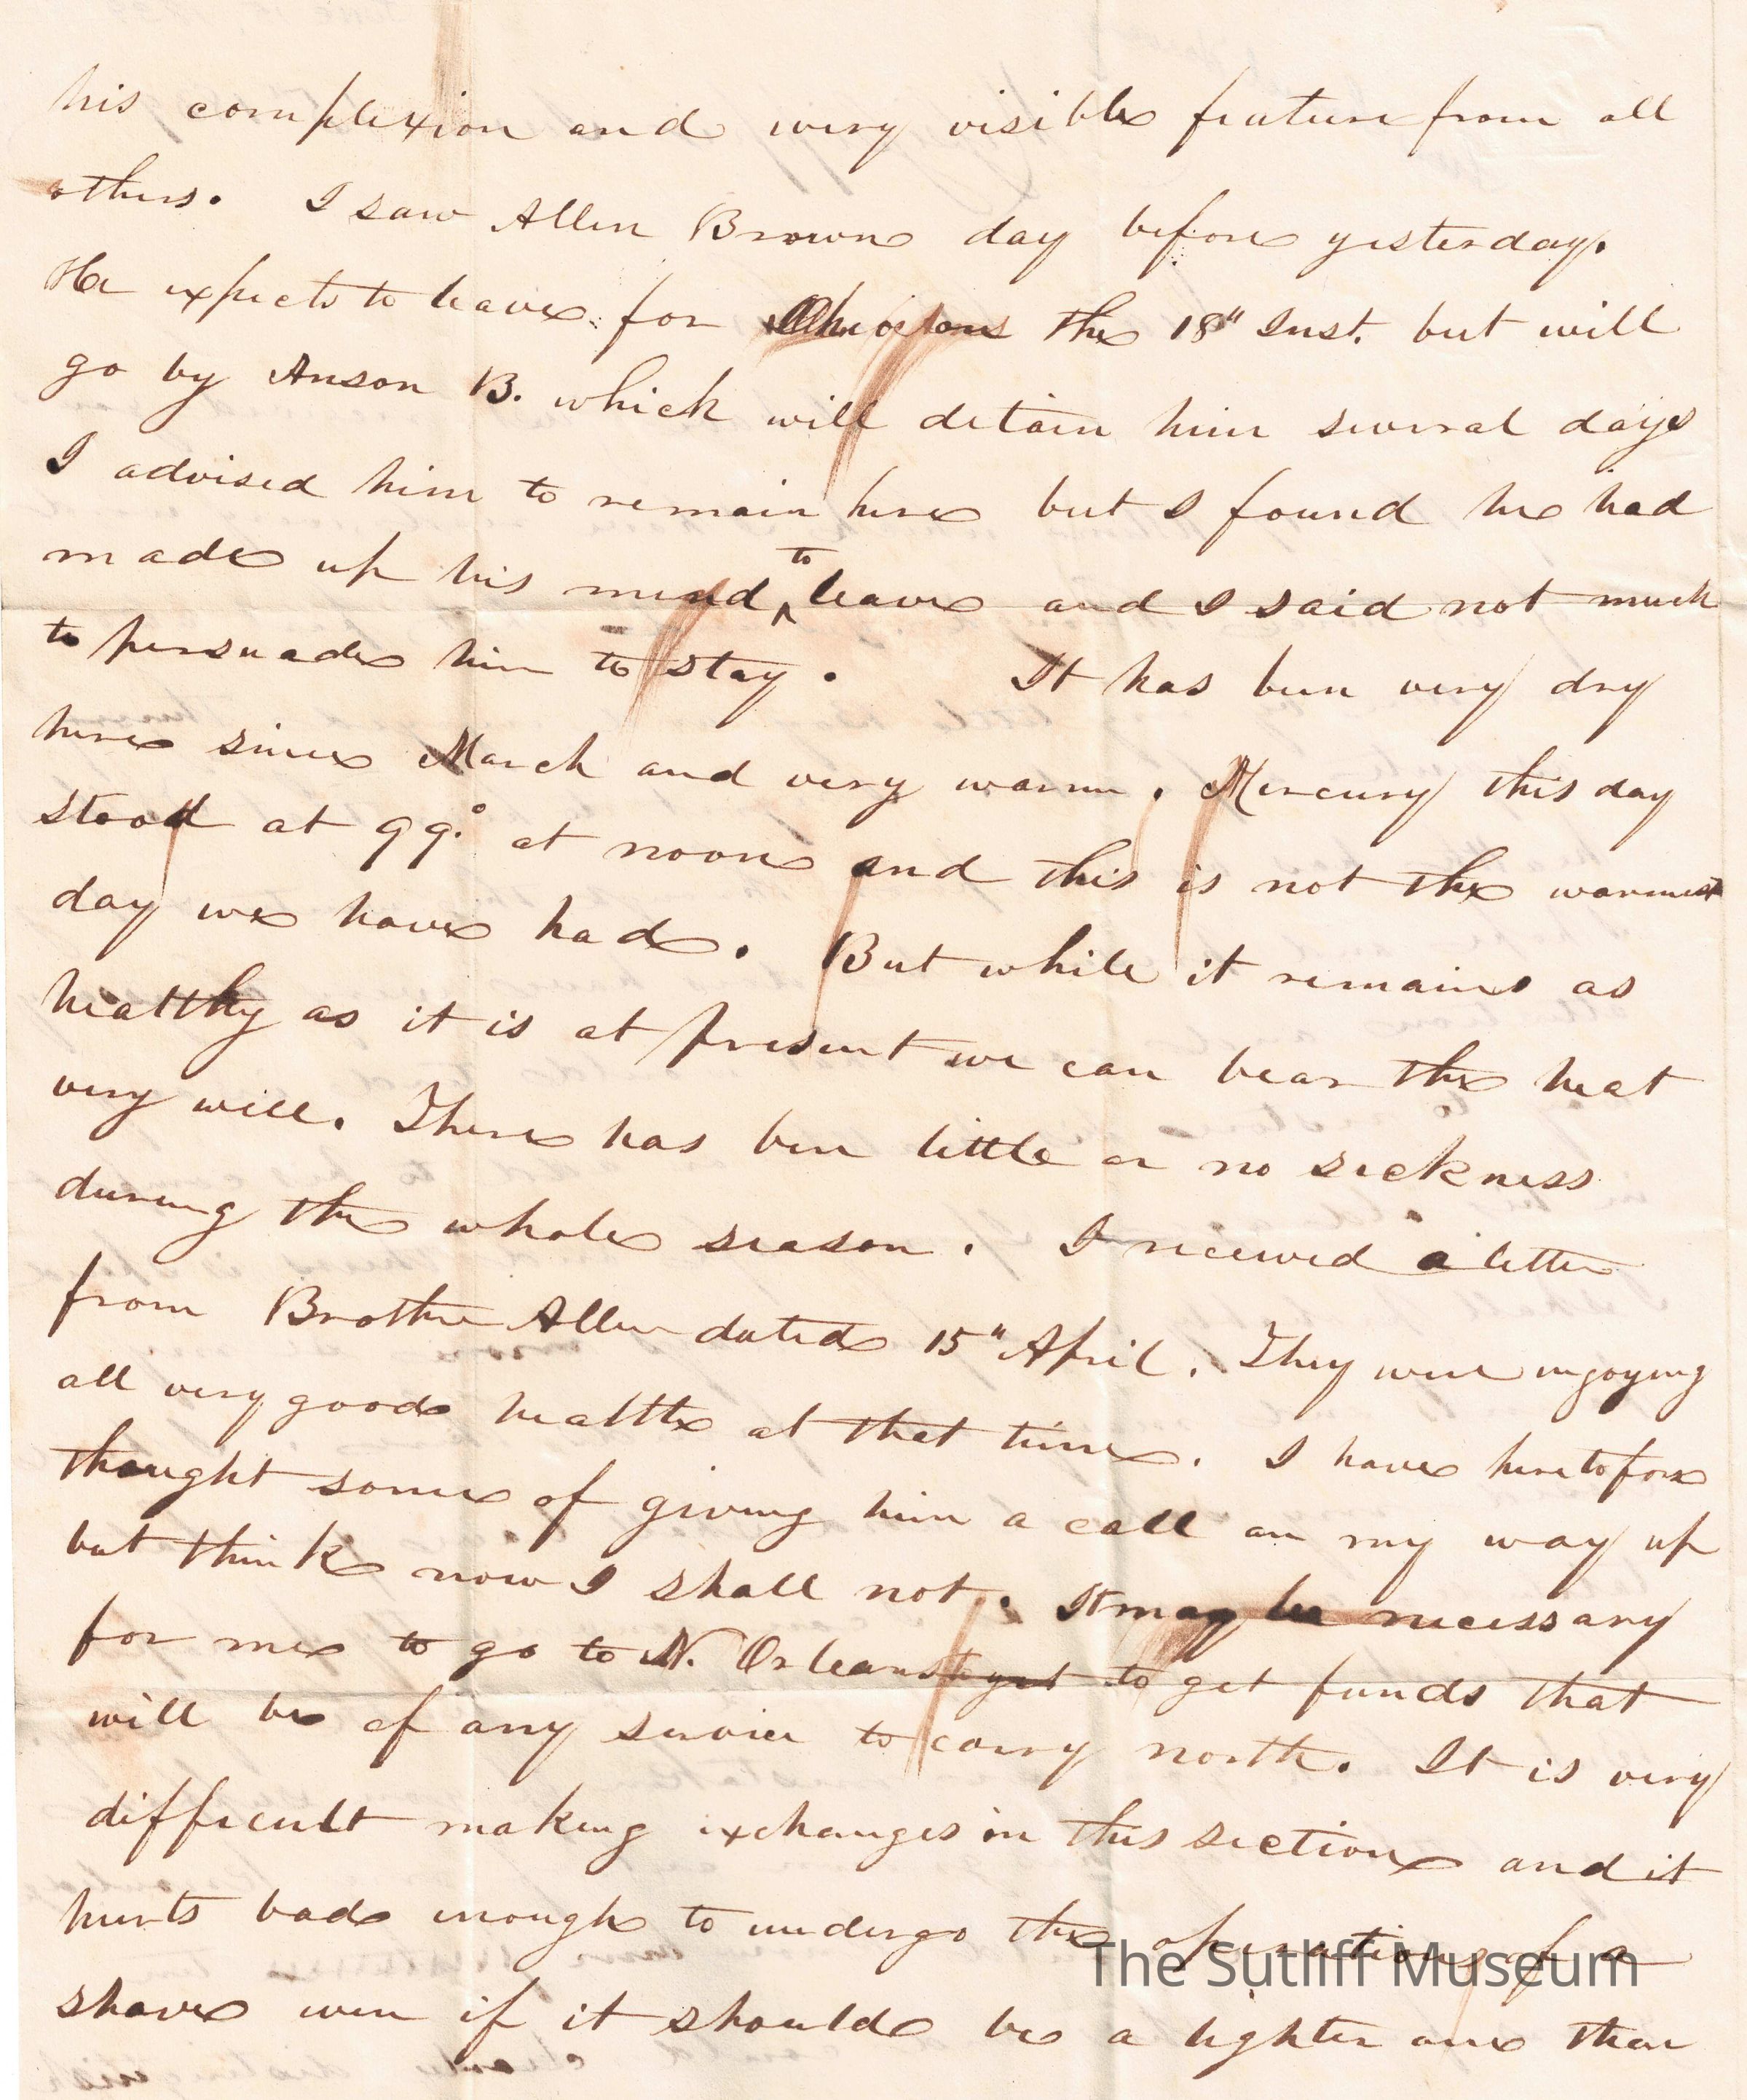 his complexion and every visible feature from all
others. I saw Allen Brown day before yesterday.
He expects to leave for the 18" Inst. but will
go by Anson B. which will detain him several days
I advised him to remain here but I found he had
made up his mind to leave and I said not much
to persuade him to stay. It has been very dry
here since March and very warm. Mercury this day
stood at 99.° at noon and this is not the warmest
day we have had. But while it remains as
healthy as it is at present we can bear the heat
very well. There has been little or no sickness
during the whole season. I received a letter
from Brother Allen dated 15" April. They were enjoying
all very good health at that time. I have heretofore
thought some of giving him a call on my way up
but think now I shall not. It may be necessary
for me to go to N. Orleans to get to get funds that
will be of any service to carry north. It is very
difficult making exchanges in this section and it
hurts bad enough to undergo the operation of a
shave even if it should be a lighter one than
The Sutliff Museum